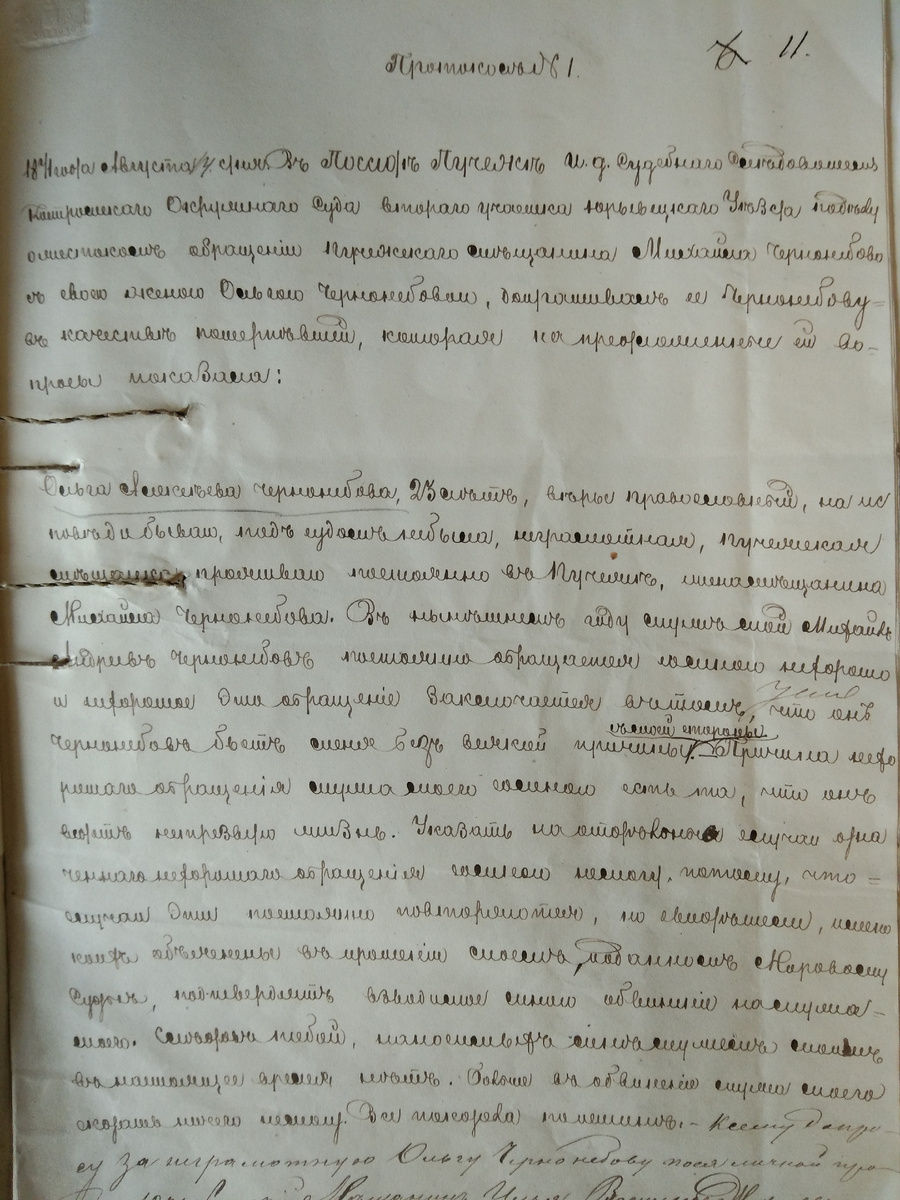 11.
Протоколъ № 1.
18 года Августа дня. Въ Посадѣ Пучежѣ И. д. Судебнаго Слѣдователя
Костромскаго Окружнаго Суда втораго участка Юрьевецкаго Уѣзда по дѣлу
о жестокомъ обращеніи Пучежскаго мѣщанина Михаила Чернонебова
съ своею женою Ольгою Чернонебовой, допрашивалъ ее Чернонебову
въ качествѣ потерпѣвшей, которая на предложенные ей во=
просы показала:
Ольга Алексѣева Чернонебова, 23 лѣтъ, вѣры православный, на ис
повѣди бываю, подъ судомъ не была, неграмотная, Пучежская
мѣщанка, проживаю постоянно въ Пучежѣ, жена мѣщанина
Михаила Чернонебова. Въ нынѣшнемъ году мужъ мой Михайлъ
Андреевъ Чернонебовъ постоянно обращается со мною нехорошо
и нехорошое это обращеніе заключается въ томъ, что онъ
съ моей стороны.
Чернонебовъ бьетъ меня безъ всякой причины. Причина нехо
рошаго обращенія мужа моего со мною есть та, что онъ
ведетъ нетрезвую жизнь. Указать на случаи
нехорошаго обращенія со мною не могу, потому, что=
случаи эти постоянно повторяются, но свидѣтели,
кои въ прошеніи моемъ, поданномъ Мировому
Судьѣ, подтвердятъ взводимое мною обвиненіе на мужа=
моего. побой, мнѣ мужемъ моимъ
въ настоящее время, нѣтъ. Болѣе въ обвиненіе мужа моего
сказать ничего не могу. - К сему допро-
су за неграмотную Ольгу Чернонебову по ея личной про-